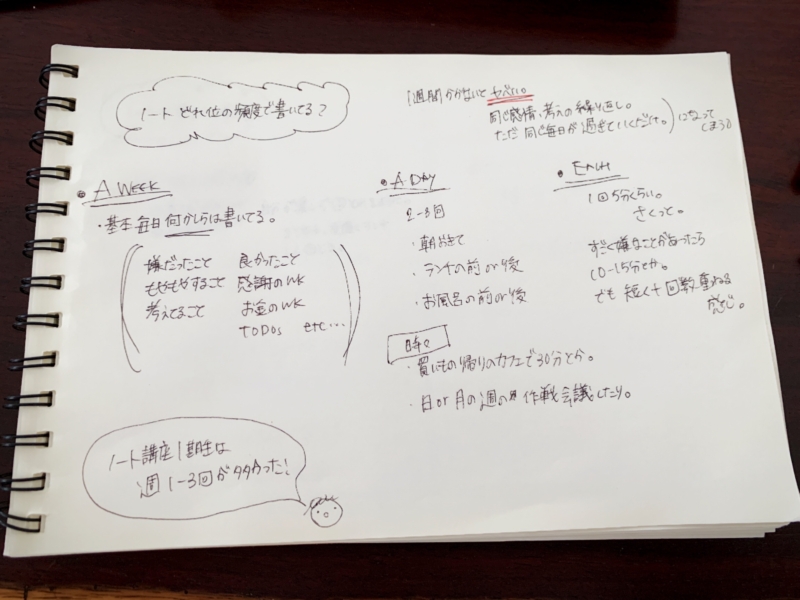 ノート どれ位の頻度で書いてる?
1週間かかないとヤバい。
同じ感情、考えの繰り返し。
ただ 同じ毎日が過ぎていくだけ。
になって
しまう
A WEEK
・基本毎日何かしらは書いてる。
嫌だったこと 良かったこと
もやもやすること 感謝のWK
考えてること お金のWK
TODOs etc…
A DAY
2-3回
・朝おきて
・ランチの前or後
・お風呂の前or後
時々
・買いもの帰りのカフェで30分とか。
・日or月の週の 作戦会議したり。
EACH
1回5分くらい。
さくっと。
すごく嫌なことがあったら
10-15分とか。
でも 短く+回数重ねる
感じ。
ノート講座1期生は
週1-3回が多かった!